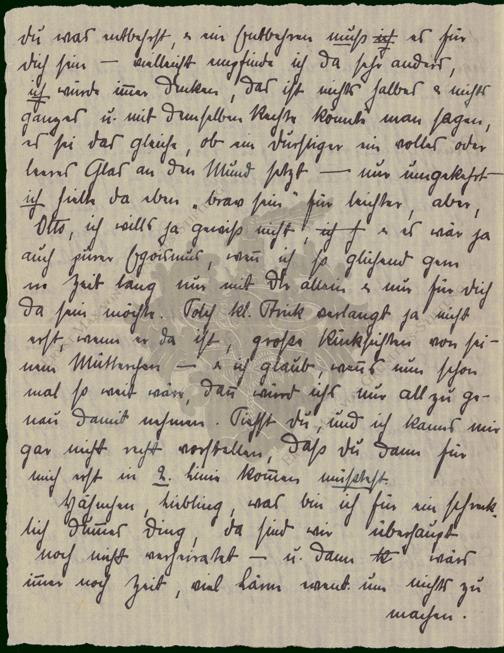 du was entbehrst, & ein Entbehren muß es für
dich sein – vielleicht empfinde ich da sehr anders,
ich würde immer denken, das ist nichts halbes & nichts
ganzes u. mit demselben Rechte könnte man sagen,
es sei das gleiche, ob ein durstiger ein volles oder
leeres Glas an den Mund setzt – nur umgekehrt
ich hielte da eben „brav sein" für leichter, aber,
Otto, ich wills ja gewiß nicht, & es wär ja
auch purer Egoismus, wenn ich so glühend gern
ne Zeit lang nur mit Dir allein & nur für dich
da sein möchte. Solch kl. Strick verlangt ja nicht
erst, wenn er da ist, große Rücksichten von sei-
nem Mütterchen – & ich glaub, wenns nun schon
mal so weit wäre, dann würd ichs nur allzu ge-
nau damit nehmen. Siehst du, und ich kanns mir
gar nicht recht vorstellen, daß du dann für
mich erst in 2. Linie kommen müßtest.
Liebling, was bin ich für ein schreck-
lich dummes Ding, da sind wir überhaupt
noch nicht verheiratet – u. dann wärs
immer noch Zeit, viel Lärm um nichts zu
machen.